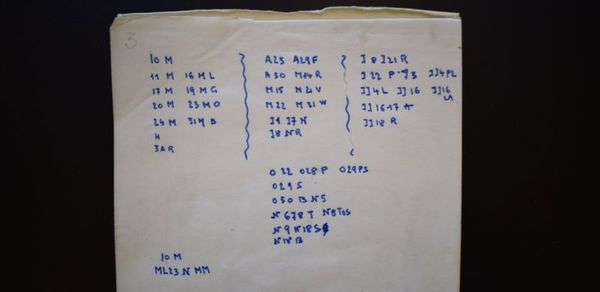 3
10 M
11 M 16 M L
17 M 19 M G
20 M 23 M O
24 M 31 M B
H
3AR
A23 A29F
A30 M14R
M15 M21V
M22 M31W
I1 I7 N
I8 NR
I8 I21R
I22 P
II4PL
II4L II16 II16
II16-17 A
II18 R
O 22 O28 P O29PS
O29 S
O30 B N5
N 678 T N8TOS
N 9 N18S
N18 B
10 M
ML23 N MM